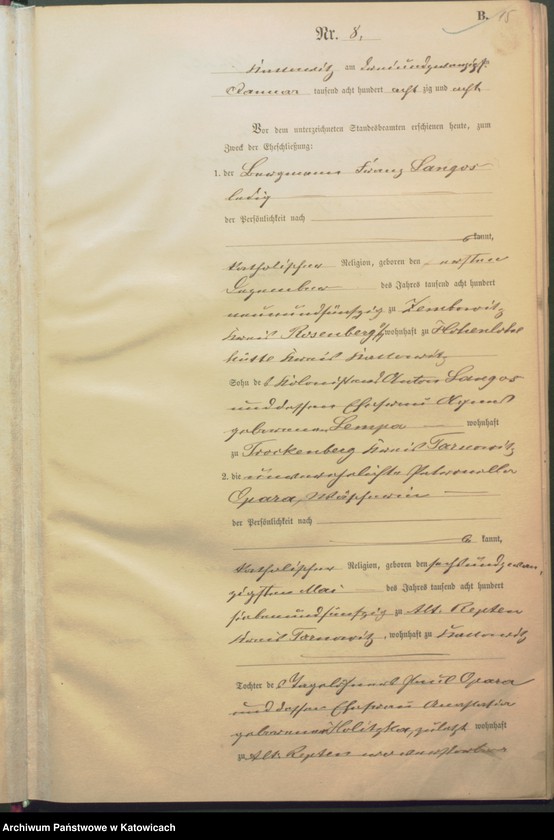 B. 15
Nr. 8.
Kattowitz am dreiundzwanzigst.
Januar tausend acht hundert acht zig und acht
Vor dem unterzeichneten Standesbeamten erschienen heute, zum
Zweck der Eheschließung:
1. der Bergmann Franz Langos
ledig
der Persönlichkeit nach
kannt,
katholischer Religion, geboren den ersten
Dezember des Jahres tausend acht hundert
neunundfünfzig zu Zembowitz
Kreis Rosenberg, wohnhaft zu Hohenlohe
hütte Kreis Kattowitz
Sohn des Kolonisten Anton Langos
und dessen Ehefrau Agnes
geborenen Lempa wohnhaft
zu Trockenberg Kreis Tarnowitz
2. die unverehelichte Petronella
Opara, Wäscherin
der Persönlichkeit nach
kannt,
katholischer Religion, geboren den sechsundzwan,
zigsten Mai des Jahres tausend acht hundert
siebenundfünfzig zu Alt. Repten
Kreis Tarnowitz, wohnhaft zu Kattowitz
Tochter des Tagelöhners Paul Opara
und dessen Ehefrau Anastasia
geborenen Holitzka, zuletzt wohnhaft
zu Alt. Repten verstorben
Archiwum Państwowe w Katowicach